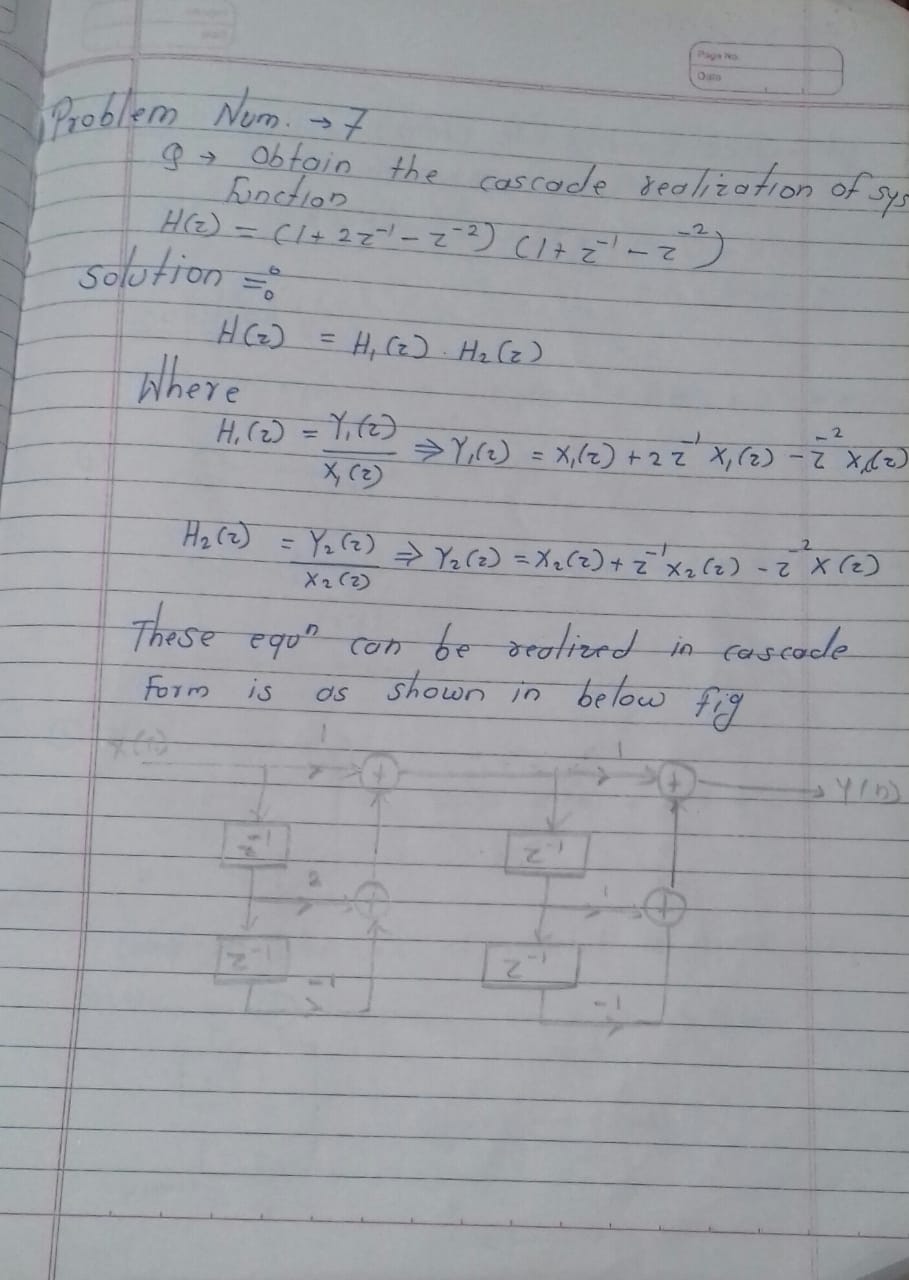 Page No.
Date
Problem Num. → 7
Q → Obtain the cascade realization of sys
function
H(z) = (1 + 2z⁻¹ - z⁻²) (1 + z⁻¹ - z⁻²)
Solution =
H(z) = H₁(z) . H₂(z)
Where
H₁(z) = Y₁(z) / X₁(z) ⇒ Y₁(z) = X₁(z) + 2z⁻¹ X₁(z) - z⁻² X₁(z)
H₂(z) = Y₂(z) / X₂(z) ⇒ Y₂(z) = X₂(z) + z⁻¹ X₂(z) - z⁻² X(z)
These equⁿ can be realized in cascade
Form is as shown in below fig
x(n) 1 + 1 + y(n)
z⁻¹ z⁻¹
2 + 1 +
z⁻¹ z⁻¹
-1 -1